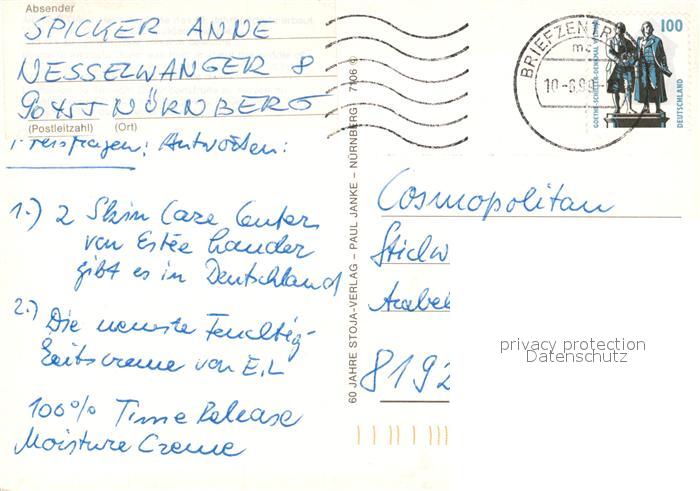 Absender
SPICKER ANNE
NESSELWANGER 8
90455 NÜRNBERG
(Postleitzahl) (Ort)
Preisfragen: Antworten:
1.) 2 Skin Care Center
von Estée Lauder
gibt es in Deutschland
2.) Die neueste Feuchtig-
keitscreme von E.L
100% Time Release
Moisture Creme
60 JAHRE STOJA-VERLAG – PAUL JANKE – NÜRNBERG 7106 ©
BRIEFZENTR
10-6.99
100
GOETHE-SCHILLER-DENKMAL
DEUTSCHLAND
Cosmopolitan
Stichw
Arabel
8192
privacy protection
Datenschutz